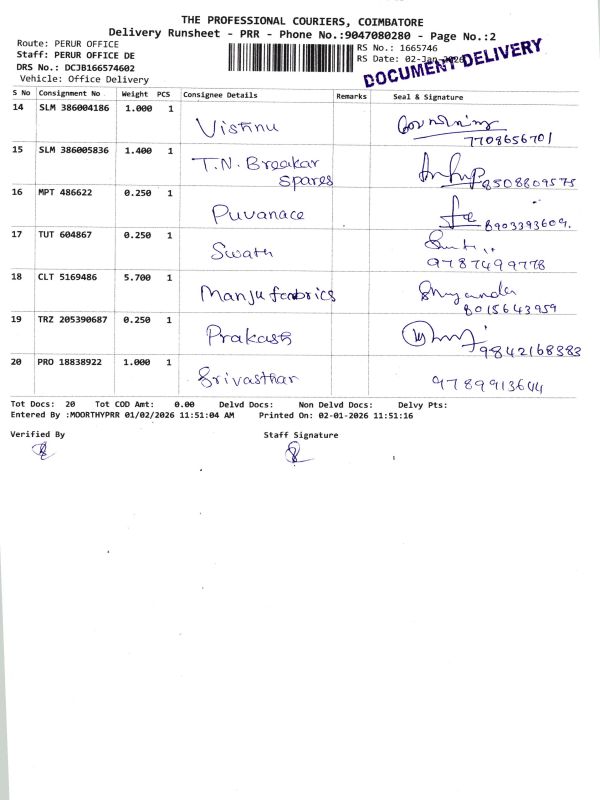 THE PROFESSIONAL COURIERS, COIMBATORE
Delivery Runsheet - PRR - Phone No.:9047080280 - Page No.:2
Route: PERUR OFFICE
Staff: PERUR OFFICE DE
DRS No.: DCJB166574602
Vehicle: Office Delivery
RS No.: 1665746
RS Date: 02-Jan-2026
DOCUMENT DELIVERY
S No Consignment No Weight PCS Consignee Details Remarks Seal & Signature
14 SLM 386004186 1.000 1 Vishnu 7708656701
15 SLM 386005836 1.400 1 T.N. Breakar spares 8508809575
16 MPT 486622 0.250 1 Puvanace 8903393609.
17 TUT 604867 0.250 1 Swath 9787499778
18 CLT 5169486 5.700 1 Manju fabrics 8015643959
19 TRZ 205390687 0.250 1 Prakash 9842168383
20 PRO 18838922 1.000 1 Srivasthar 9789913644
Tot Docs: 20 Tot COD Amt: 0.00 Delvd Docs: Non Delvd Docs: Delvy Pts:
Entered By :MOORTHYPRR 01/02/2026 11:51:04 AM Printed On: 02-01-2026 11:51:16
Verified By Staff Signature